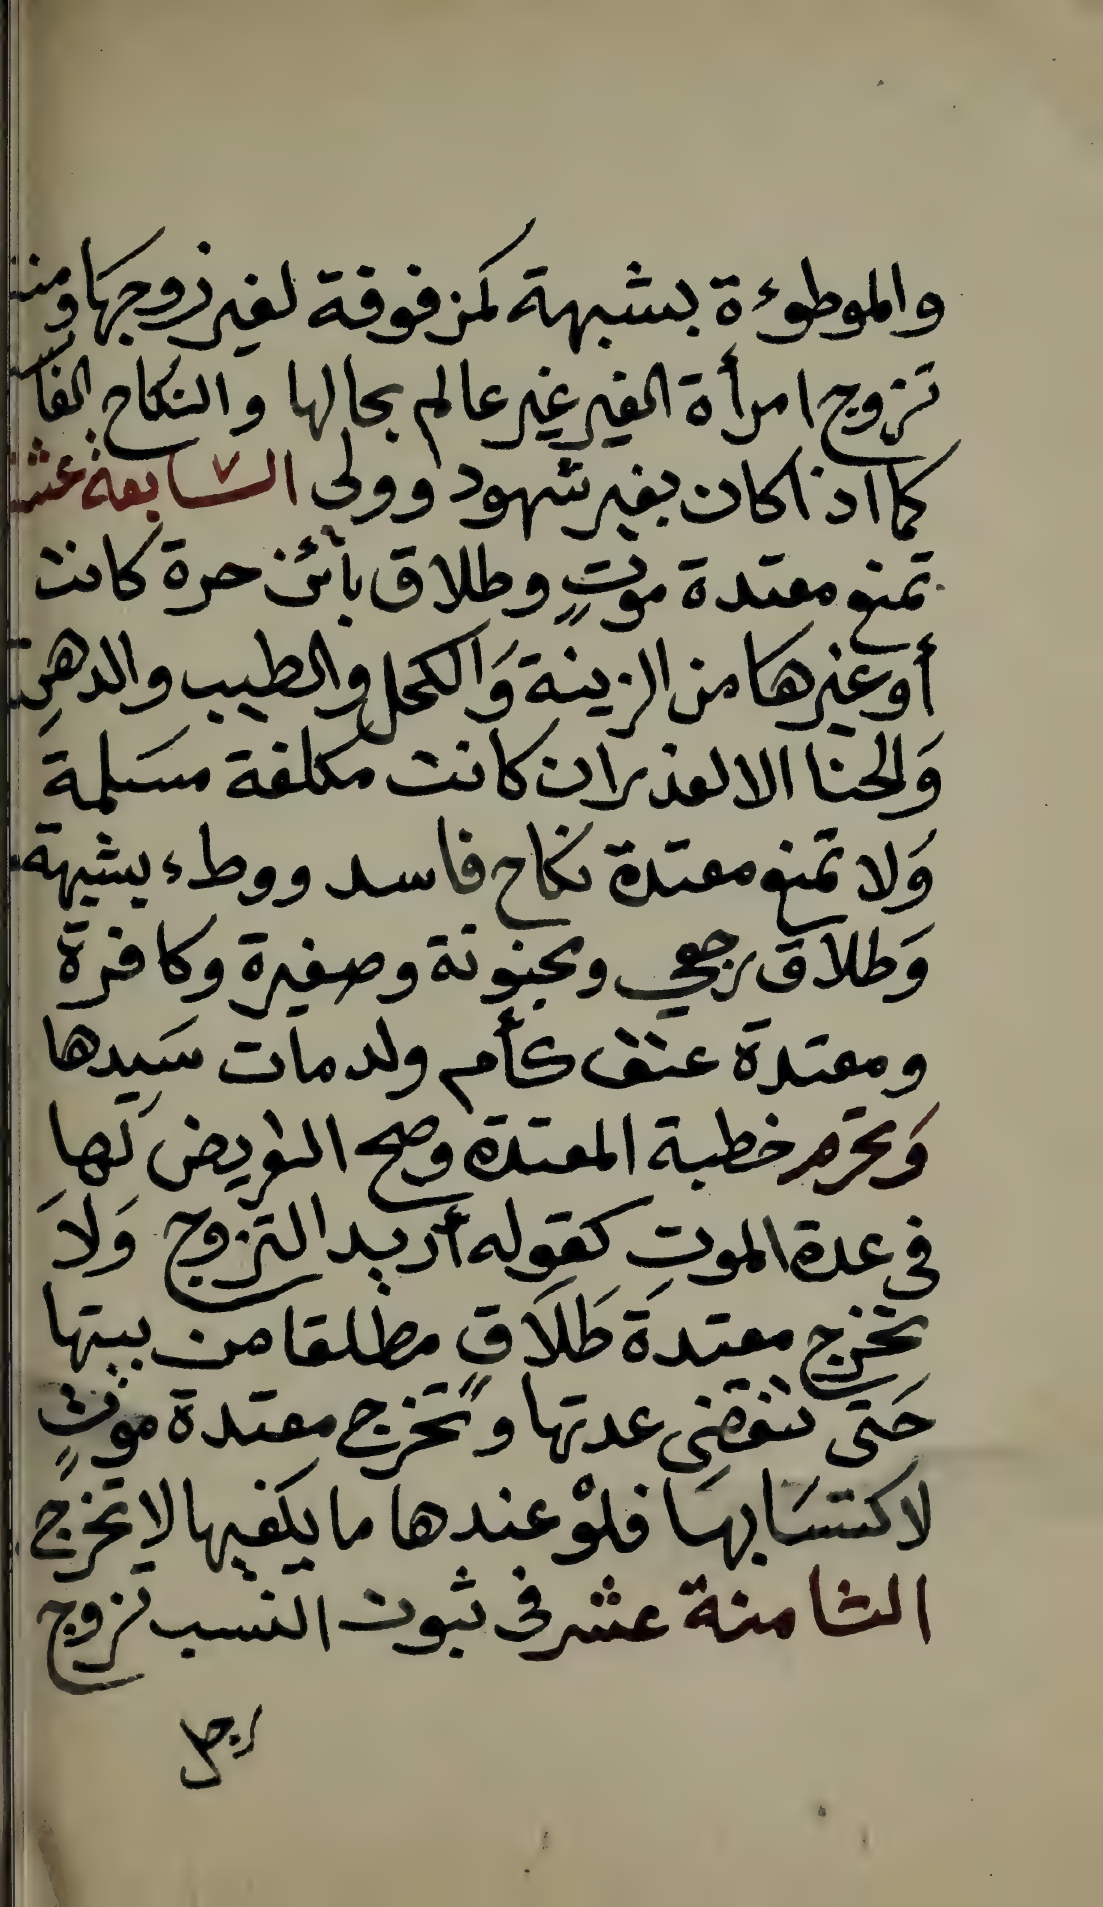 والموطوءة بشبهة كمزفوفة لغير زوجها ومنه
تزوج امرأة الغير غير عالم بحالها والنكاح الفا
كما اذا كان بغير شهود وولى السابعة عشر
تمنع معتدة موتٍ وطلاق بائن حرة كانت
أو غيرها من الزينة وَالكحل والطيب والدهن
وَالحنا الا لعذر ان كانت مكلفة مسَلمة
وَلا تمنع معتدة نكاح فاسد ووطء بشبهة
وَطلاق رجعي ومجنونة وصغيرة وكافرة
ومعتدة عتق كأم ولد مات سَيدها
وَتحرم خطبة المعتدة وصح التعريض لَها
في عدة الموتِ كقوله أريد التزوج وَلاَ
تخرج معتدَة طَلاَقٍ مطلقا من بيتها
حَتى تنقضى عدتها وَتخرج معتدة موتٍ
لاكتسَابهَا فلوْ عندها ما يكفيها لا تخرج
الثامنة عشر فى ثبوت النسب تزوج
رجل